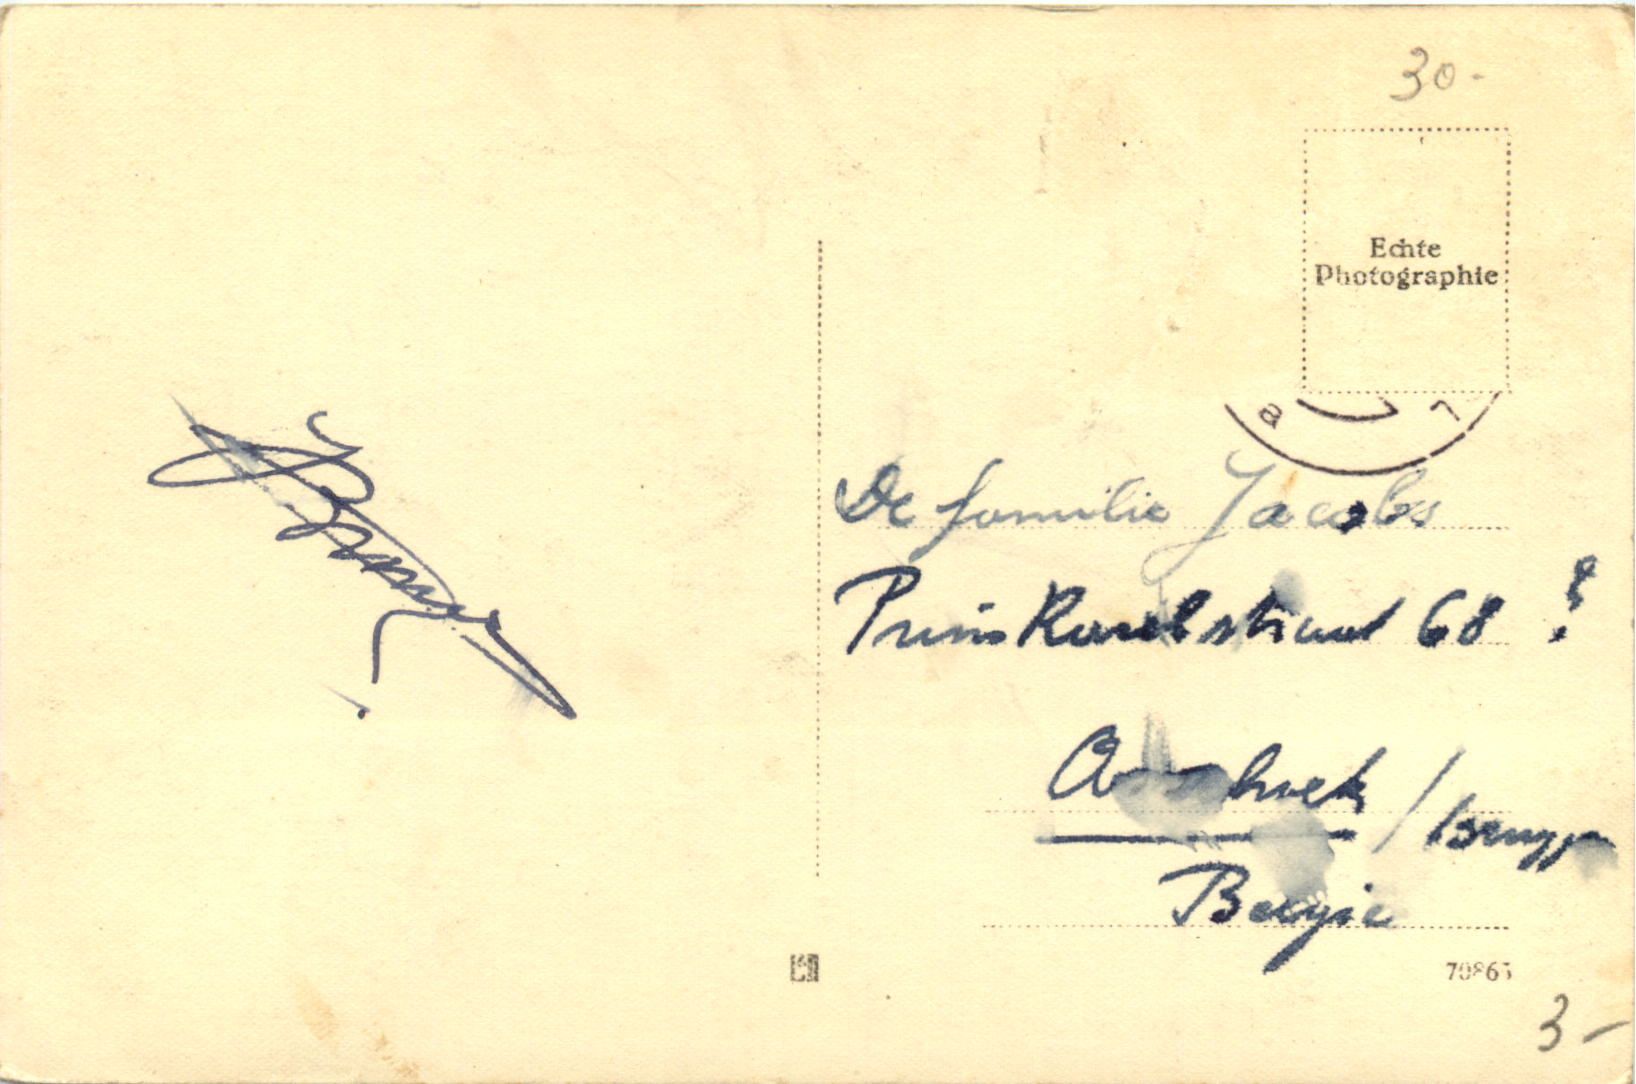 30.-
Echte
Photographie
a
De familie Jacobs
Prins Karelstraat 68 ?
/ Brugge
Belgie
3-